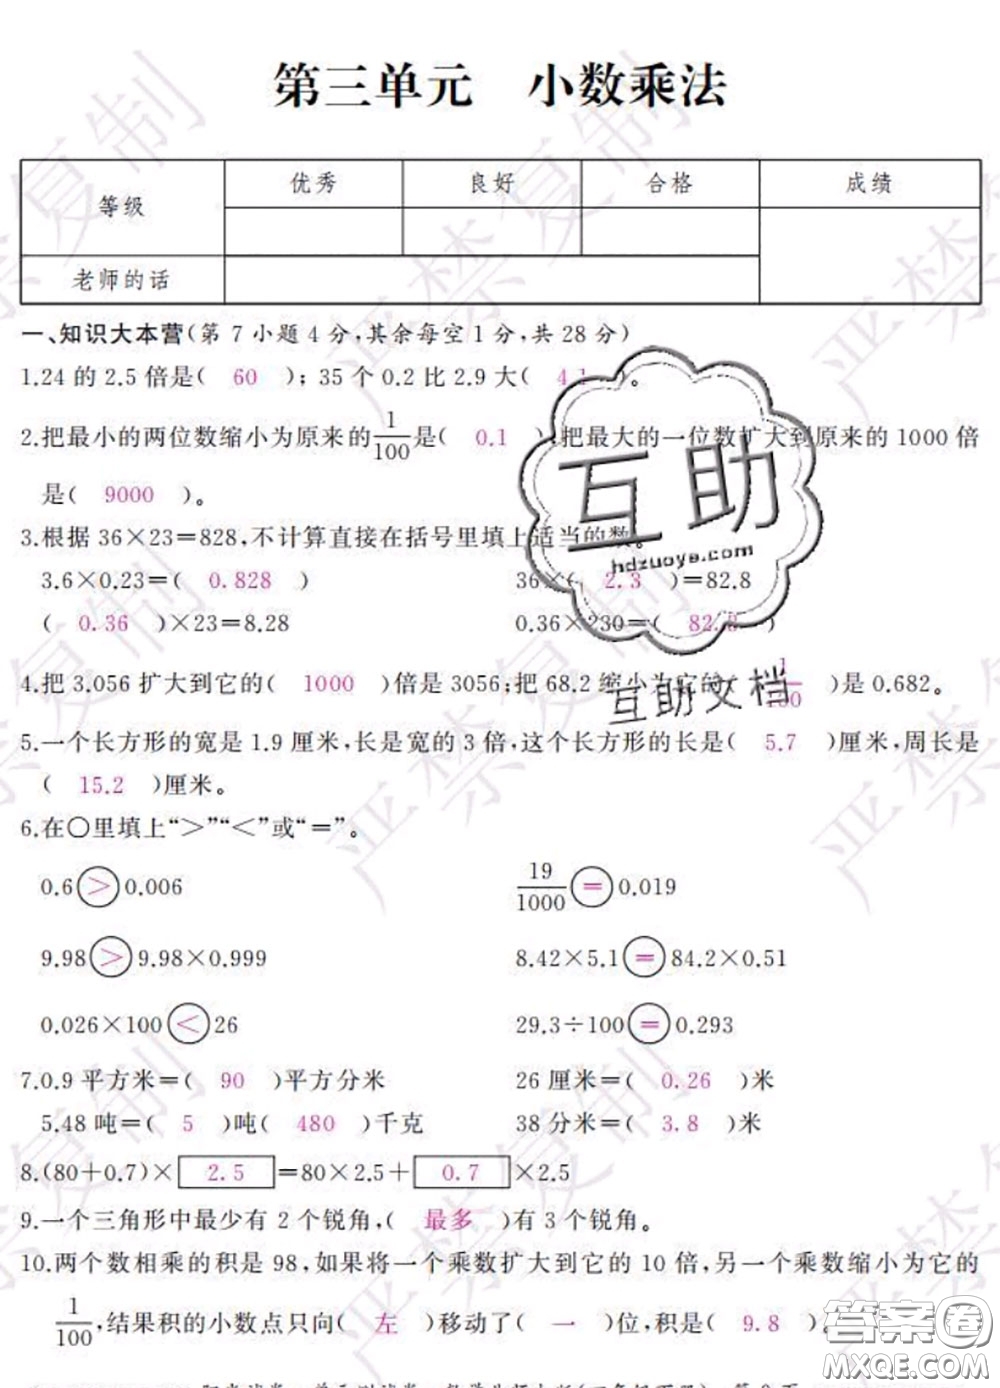 第三单元 小数乘法
等级 优秀 良好 合格 成绩
老师的话
一、知识大本营(第 7 小题 4 分,其余每空 1 分,共 28 分)
1.24 的 2.5 倍是( 60 );35 个 0.2 比 2.9 大( 4.1 )。
2.把最小的两位数缩小为原来的1/100是( 0.1 ),把最大的一位数扩大到原来的 1000 倍
是( 9000 )。
3.根据 36×23=828,不计算直接在括号里填上适当的数。
3.6×0.23=( 0.828 ) 36×( 2.3 )=82.8
( 0.36 )×23=8.28 0.36×230=( 82.8 )
4.把 3.056 扩大到它的( 1000 )倍是 3056;把 68.2 缩小为它的( 1/100 )是 0.682。
5.一个长方形的宽是 1.9 厘米,长是宽的 3 倍,这个长方形的长是( 5.7 )厘米,周长是
( 15.2 )厘米。
6.在○里填上“>”“<”或“=”。
0.6 > 0.006 19/1000 = 0.019
9.98 > 9.98×0.999 8.42×5.1 = 84.2×0.51
0.026×100 < 26 29.3÷100 = 0.293
7.0.9 平方米=( 90 )平方分米 26 厘米=( 0.26 )米
5.48 吨=( 5 )吨( 480 )千克 38 分米=( 3.8 )米
8.(80+0.7)× 2.5 =80×2.5+ 0.7 ×2.5
9.一个三角形中最少有 2 个锐角,( 最多 )有 3 个锐角。
10.两个数相乘的积是 98,如果将一个乘数扩大到它的 10 倍,另一个乘数缩小为它的
1/100,结果积的小数点只向( 左 )移动了( 一 )位,积是( 9.8 )。
互助
hdzuoye.com
互助文档
严禁复制
答案圈
MXQE.COM